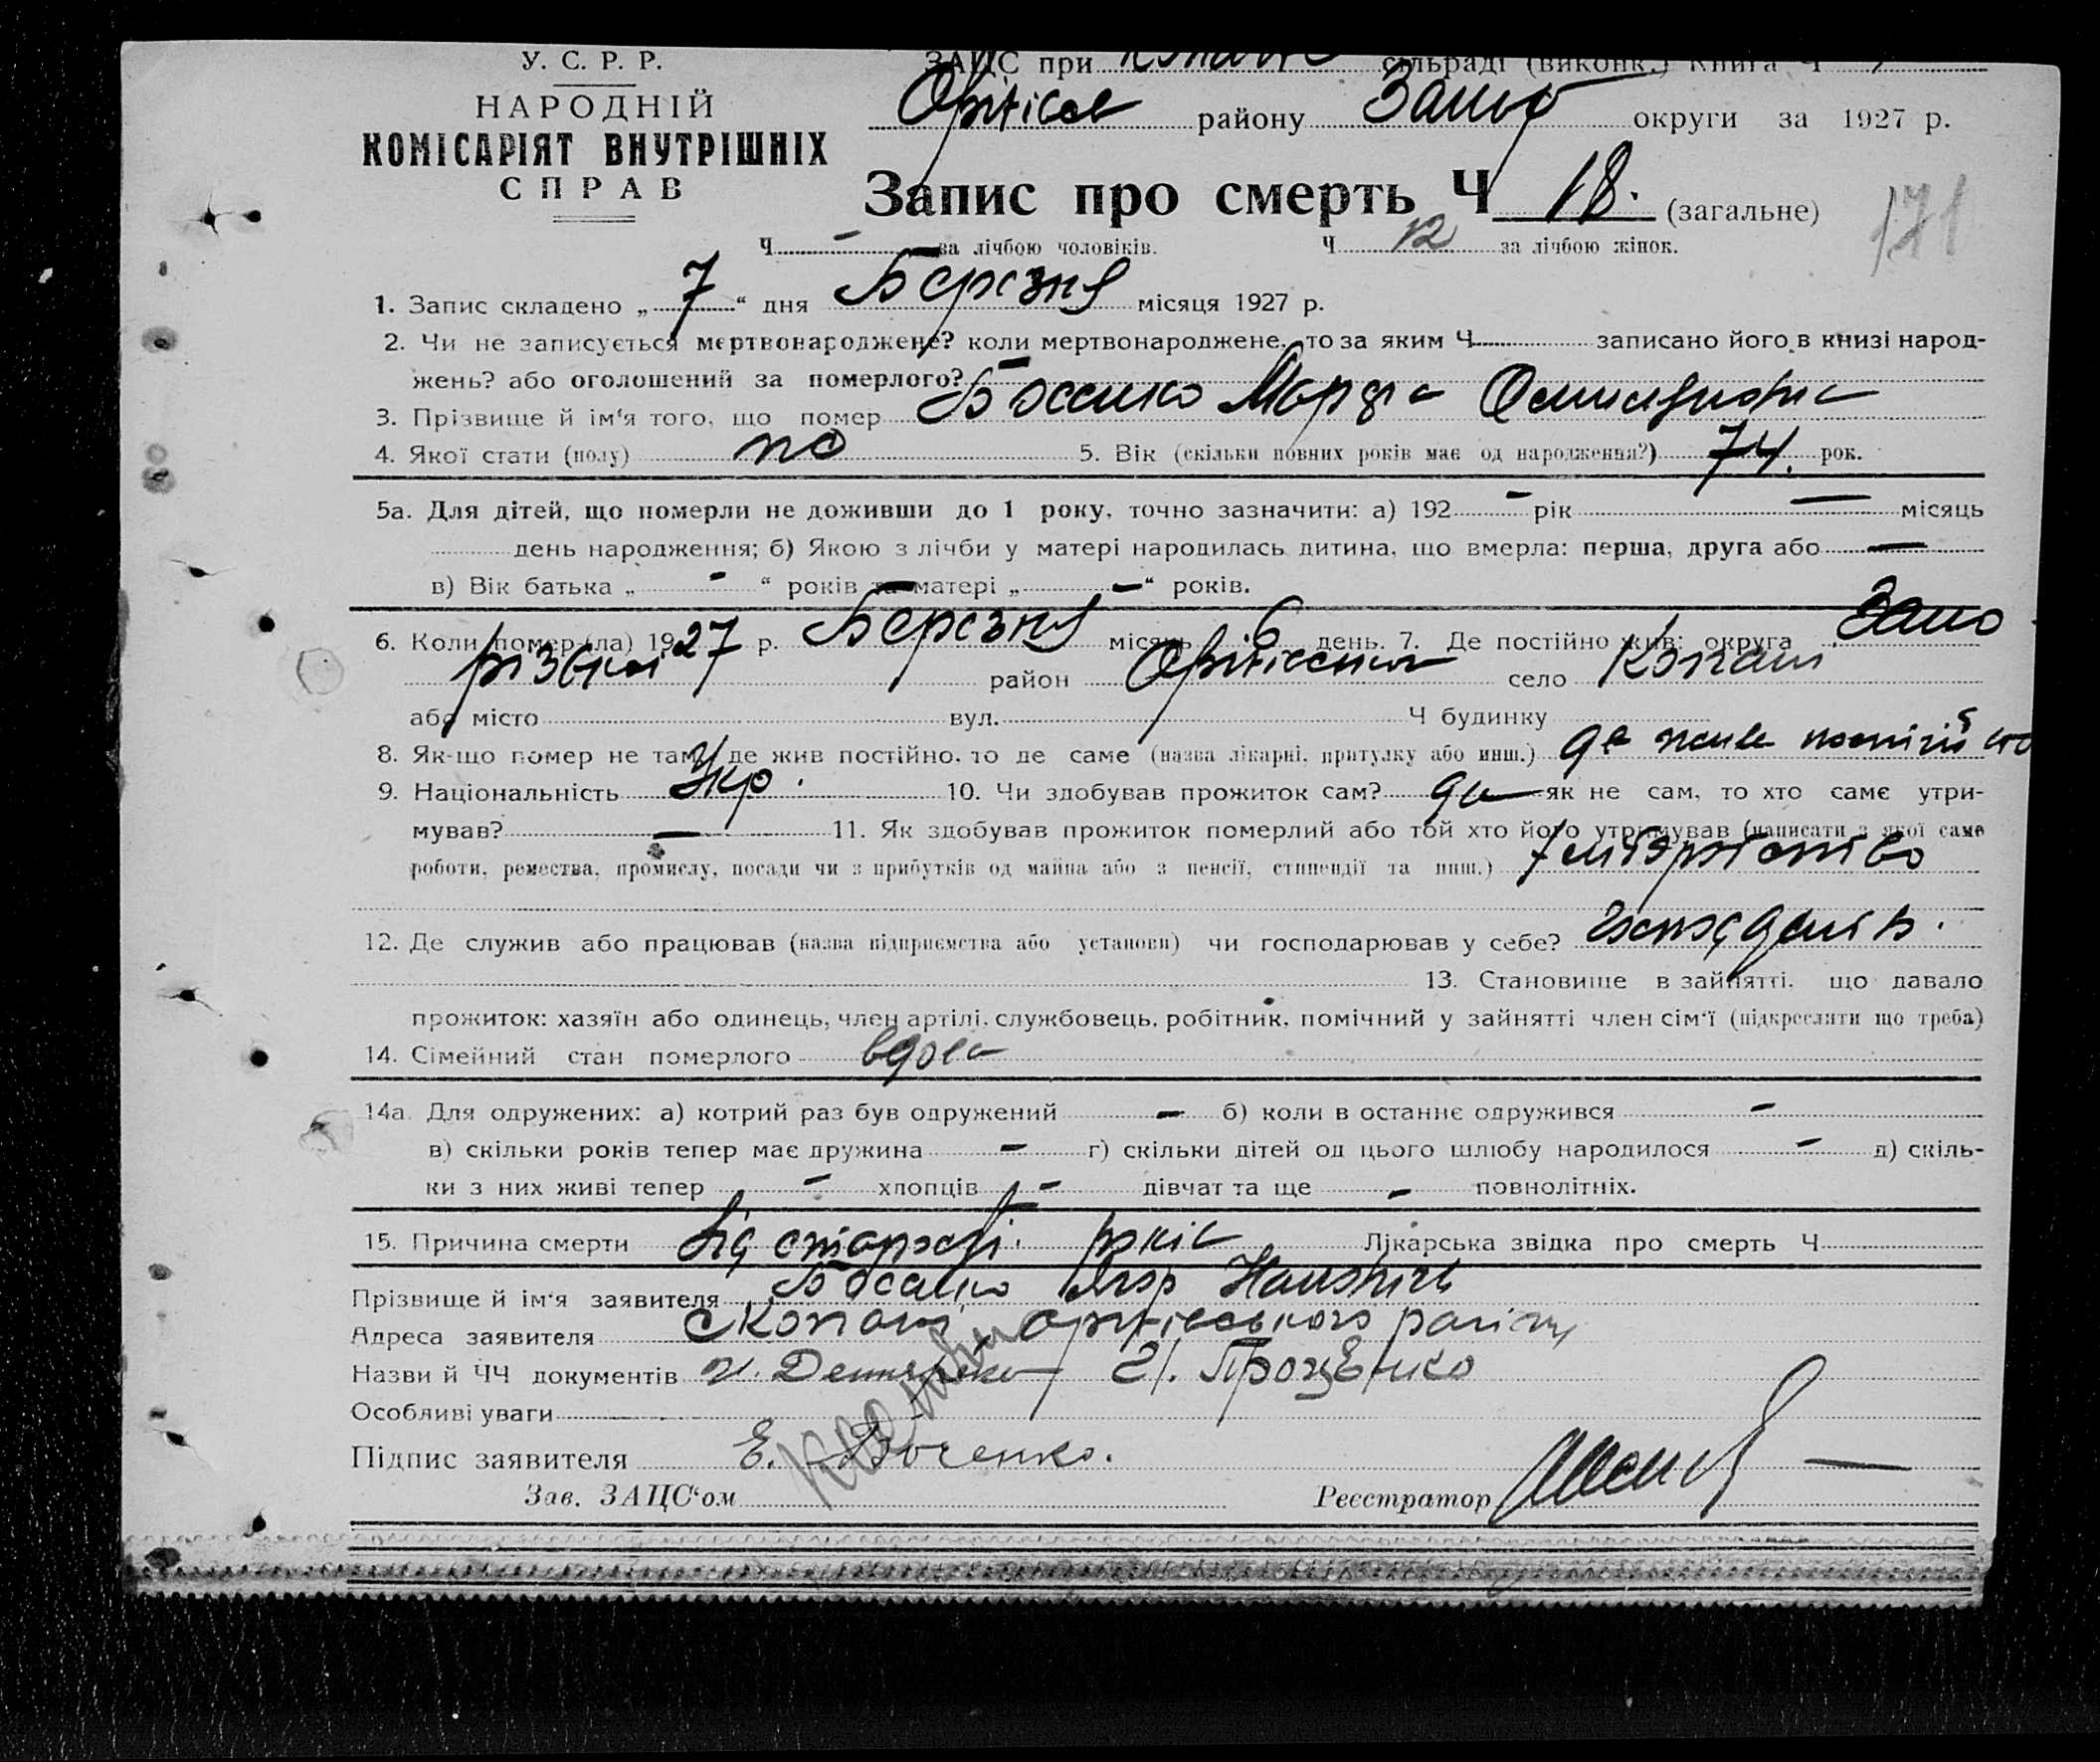 У. С. Р. Р.
НАРОДНІЙ
КОМІСАРІЯТ ВНУТРІШНІХ
СПРАВ
ЗАЦС при сільраді (виконк.) Книга Ч
району Запор округи за 1927 р.
Запис про смерть Ч 18. (загальне)
171
Ч - за лічбою чоловіків. Ч 12 за лічбою жінок.
1. Запис складено „ 7 “ дня Березня місяця 1927 р.
2. Чи не записується мертвонароджене? коли мертвонароджене, то за яким Ч записано його в книзі народ-
жень? або оголошений за померлого? —
3. Прізвище й ім'я того, що помер Марфа
4. Якої стати (полу) 5. Вік (скільки повних років має од народження?) 74. рок.
5а. Для дітей, що померли не доживши до 1 року, точно зазначити: а) 192 - рік — місяць
день народження; б) Якою з лічби у матері народилась дитина, що вмерла: перша, друга або —
в) Вік батька „ - “ років та матері „ - “ років.
6. Коли помер (ла) 1927 р. Березня місяць 6 день. 7. Де постійно жив: округа Запо
різька район село Копані
або місто вул. Ч будинку
8. Як-що помер не там, де жив постійно, то де саме (назва лікарні, притулку або инш.) де жив постійно
9. Національність Укр. 10. Чи здобував прожиток сам? да як не сам, то хто саме утри-
мував? — 11. Як здобував прожиток померлий або той хто його утримував (написати з якої саме
роботи, ремества, промислу, посади чи з прибутків од майна або з пенсії, стипендії та инш.) хліборобство
12. Де служив або працював (назва підприємства або установи) чи господарював у себе?
13. Становище в зайнятті, що давало
прожиток: хазяїн або одинець, член артілі, службовець, робітник, помічний у зайнятті член сім'ї (підкреслити що треба)
14. Сімейний стан померлого вдова
14а. Для одружених: а) котрий раз був одружений - б) коли в останнє одружився -
в) скільки років тепер має дружина - г) скільки дітей од цього шлюбу народилося - д) скіль-
ки з них живі тепер - хлопців - дівчат та ще - повнолітніх.
15. Причина смерти Від старості років Лікарська звідка про смерть Ч
Прізвище й ім'я заявителя
Адреса заявителя с Копані, району
Назви й ЧЧ документів Проценко
Особливі уваги
Підпис заявителя Е.
Зав. ЗАЦС'ом Реєстратор